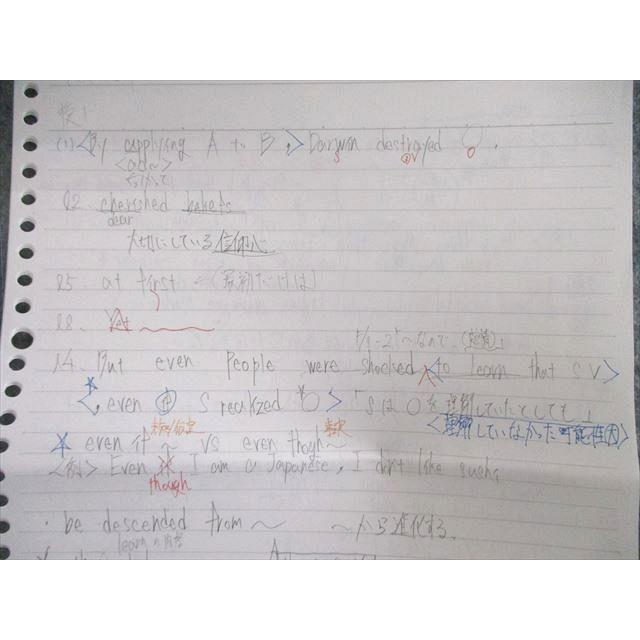 (1) <By applying A to B,> Darwin destroyed O.
S ①V O
<ad~>
l2. cherished beliefs
dear
大切にしている信仰心
l5. at first ←(最初だけは)
l8. Yet
「~なので(感情)」
l4. But even people were shocked <to learn that SV>
<, even if S realized O> 「SはOを理解していたとしても」
<理解していなかった可能性大>
* even if ~ vs even though ~
<例> Even if I am a Japanese, I don't like sushi
though
・be descended from ~ ~から進化する.
learnの内容